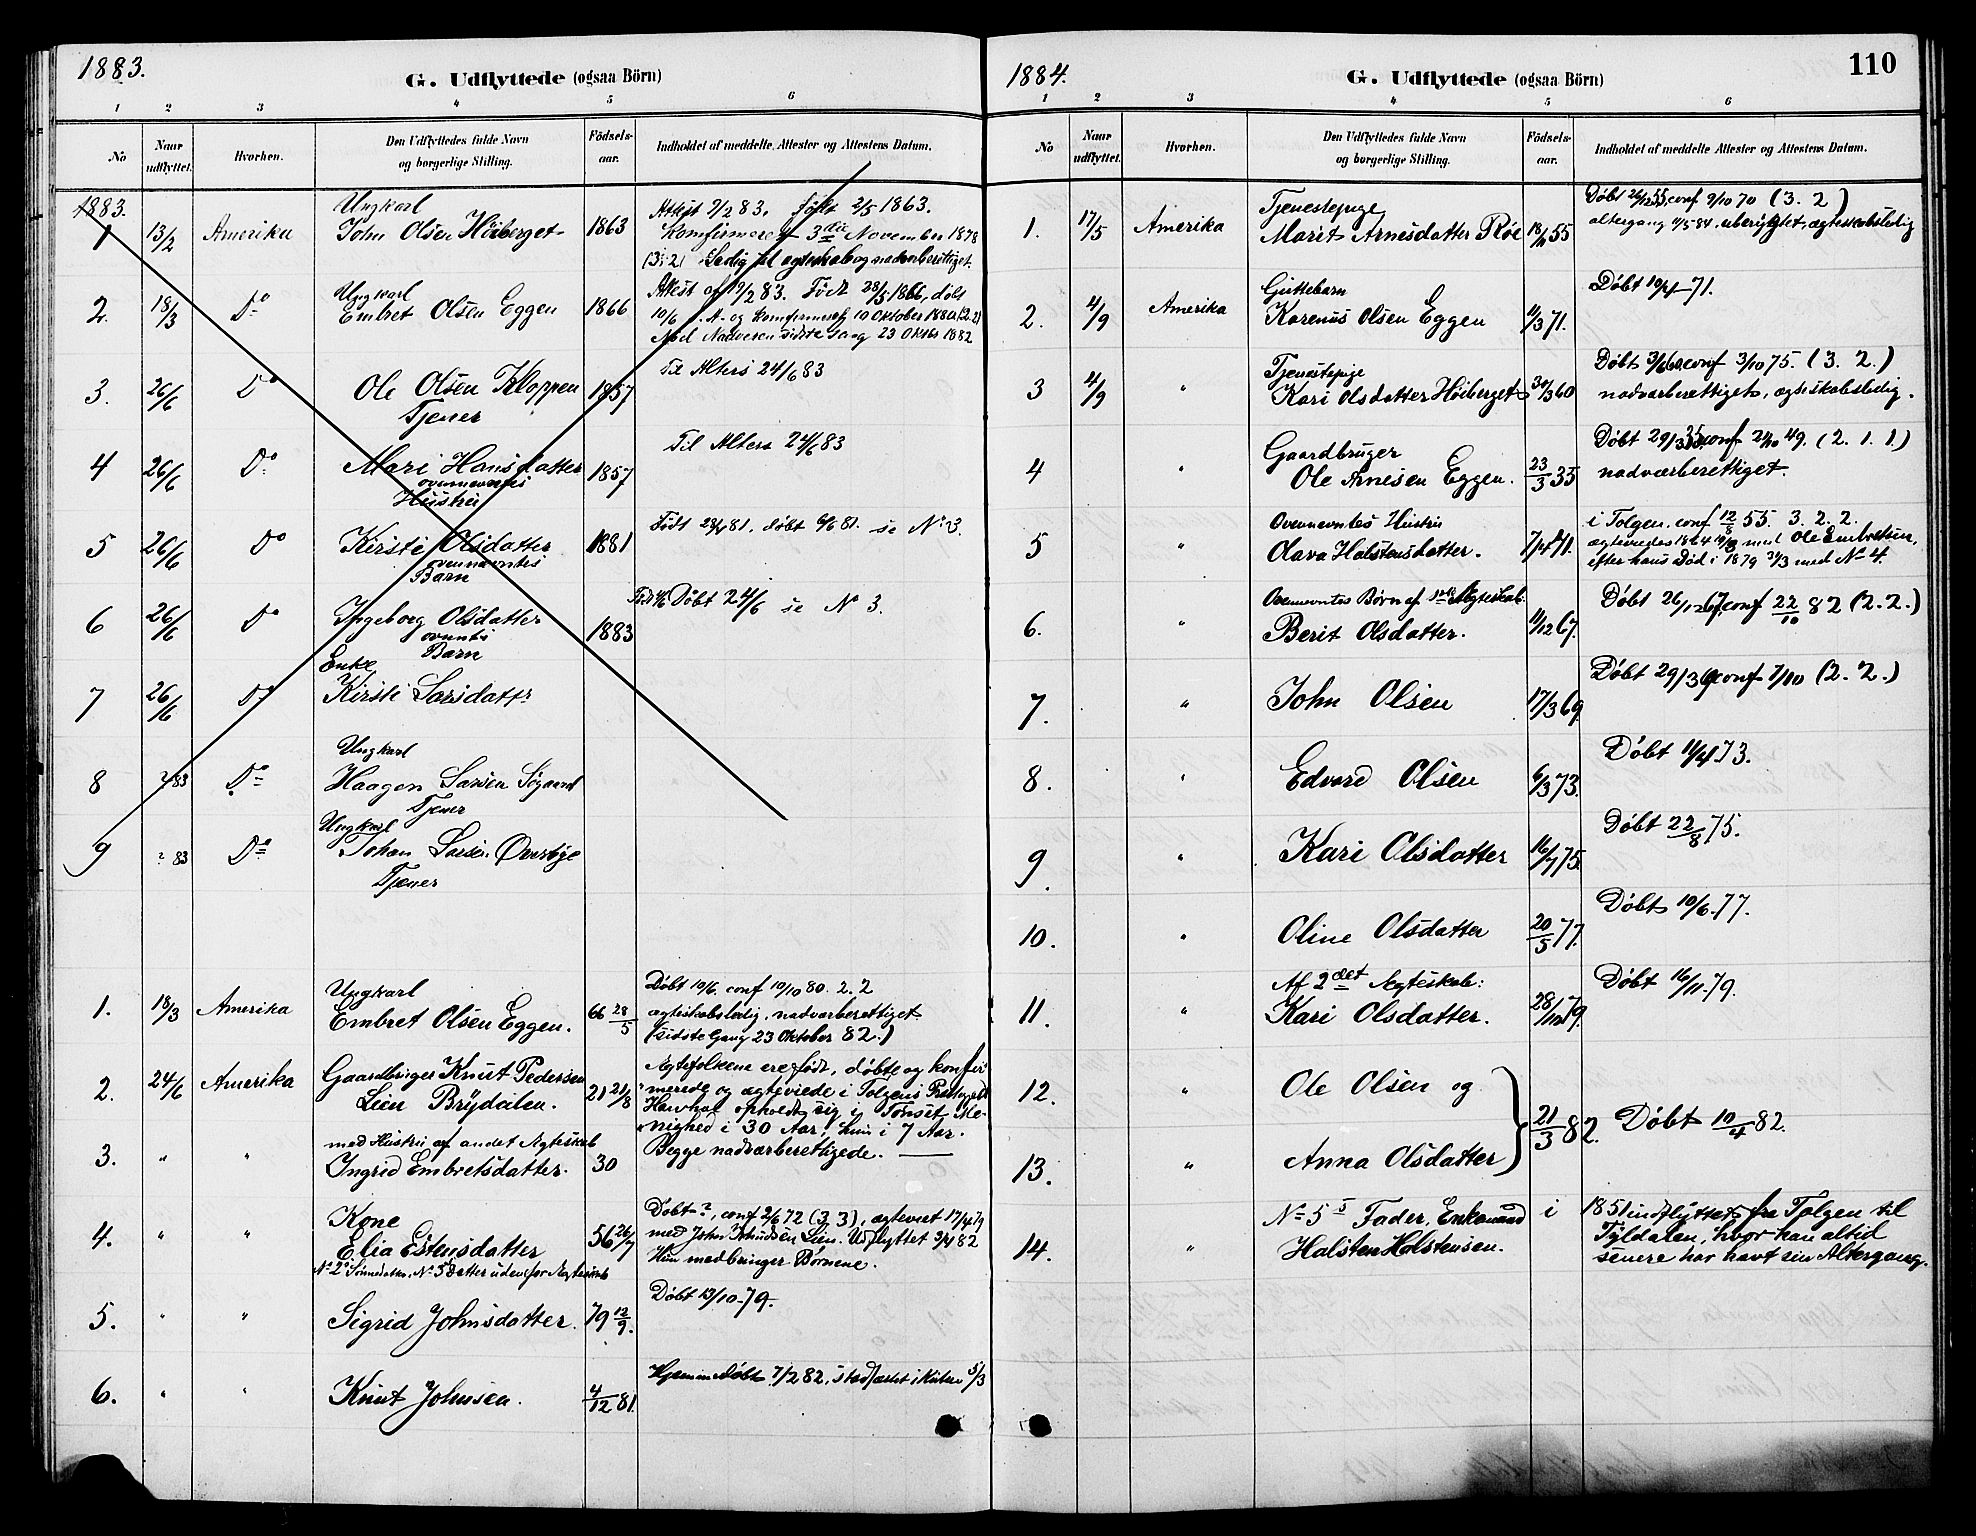 1883.
G. Udflyttede (ogsaa Börn)
1 2 3 4 5 6
No
Naar udflyttet.
Hvorhen.
Den Udflyttedes fulde Navn
og borgerlige Stilling.
Födsels-
aar.
Indholdet af meddelte, Attester og Attestens Datum.
1883.
Ungkarl
1 13/2 Amerika John Olsen Höiberget 1863
Attest 7/2 83. Født 2/5 1863.
Komfirmeret 3die November 1878
(3.2) Ledig til egteskab og nadverberettiget.
Ungkarl
2. 18/3 Do Embret Olsen Eggen 1866
Attest af 19/2 83. Født 28/5 1866, døbt
10/6 s. A. og Komfirmeret 10 Oktober 1880 (2.2)
Nød Nadveren sidste Gang 23 Oktbr 1882
3. 26/6 Do Ole Olsen Kloppen 1857
Tjener
Til Alters 24/6 83
4 26/6 Do Mari Hansdatter 1857
ovennevntes
Hustru
Til Alters 24/6 83
5 26/6 Do Kirsti Olsdatter 1881
ovennævntes
Barn
Født 28/4 81. døbt 6/6 81. se No 3.
6 26/6 Do Ingeborg Olsdatter 1883
Barn
Døbt 24/6 se No 3.
Enke
7 26/6 Do Kirsti Larsdattr
Ungkarl
8 ? 83 Do Haagen Larsen Søgaard
Tjener
Ungkarl
9 ? 83 Do Johan Larsen Øversjø
Tjener
Ungkarl
1. 18/3 Amerika Embret Olsen Eggen. 66 28/5
Døbt 10/6. conf 10/10 80. 2.2
ægteskabsledig, nadværberettiget
(sidste Gang 23 Oktober 82.)
2. 24/6 Amerika Gaardbruger Knut Pedersen
Lien Brydalen. 21 21/8
Ægtefolkene ere født, døbte og konfir
merede og ægteviede i Tolgens Præstegjeld
Han har opholdt sig i Tønset Me-
nighed i 30 Aar, hun i 7 Aar.
Begge nadværberettigede.
3. " " med Hustru af andet Ægteskab
Ingrid Embretsdatter. 30
Kone
4. " " Elia Estensdatter 56 26/7
Døbt ?, conf 2/6 72 (3.3), ægteviet 17/4 79
med John Knudsen Lien. Udflyttet 3/4 82
Hun medbringer Børnene.
No 2s Sønnedatter, No 3s Datter udenfor Ægteskab
5. " " Sigrid Johnsdatter. 79 12/9.
Døbt 13/10 79.
6. " " Knut Johnsen. 4/12 81.
Hjemmedøbt 7/2 82, stadfæstet i Kirken 5/3
1884.
G. Udflyttede (ogsaa Börn)
110
1 2 3 4 5 6
No
Naar
udflyttet.
Hvorhen.
Den Udflyttedes fulde Navn
og borgerlige Stilling.
Födsels-
aar.
Indholdet af meddelte Attester og Attestens Datum.
Tjenestepige
1. 17/5 Amerika Marit Arnesdatter Røe 55
Døbt 26/12 55, conf 9/10 70 (3. 2)
altergang 11/5 84, uberygtet, ægteskabsledig
Guttebarn
2. 4/9 Amerika Karenus Olsen Eggen 11/3 71.
Døbt 10/4 71.
Tjenestepige
3 4/9 " Kari Olsdatter Høiberget 30/3 60
Døbt 3/6 60 conf 3/10 75. (3. 2.)
nadværberettiget, ægteskabsledig.
Gaardbruger
4 " Ole Arnesen Eggen. 23/3 35
Døbt 29/3 35 conf 21/10 49. (2. 1. 1.)
nadværberettiget.
Ovennevntes Hustru
5 " Olava Halstensdatter. 7/4 41.
i Tolgen. conf 12/8 55. 3. 2. 2.
med Ole Embretsen,
efter hans Død i 1879 med No 4.
Ovennevntes Børn af 1ste Ægteskab:
6. " Berit Olsdatter. 11/12 67.
Døbt 26/12 67. conf 22/10 82 (2. 2.)
7. " John Olsen 17/3 69
Døbt 29/3 69 conf 7/10 (2. 2.)
8. " Edvard Olsen 6/3 73.
Døbt 11/4 73.
9. " Kari Olsdatter 16/7 75.
Døbt 22/8 75.
10. " Oline Olsdatter 20/5 77.
Døbt 10/6 77.
Af 2det Ægteskab:
11. " Kari Olsdatter. 28/10 79.
Døbt 16/11 79.
12. " Ole Olsen og
21/3 82. Døbt 10/4 82.
13. " Anna Olsdatter
No 5s Fader, Enkemand i 1851 indflyttet fra Tolgen til
14. " Halsten Halstensen.
Tyldalen, hvor han altid
senere har havt sin Altergang.